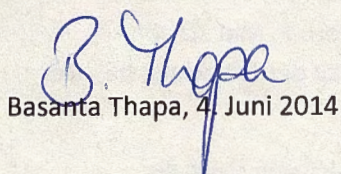 B. Thapa
Basanta Thapa, 4. Juni 2014